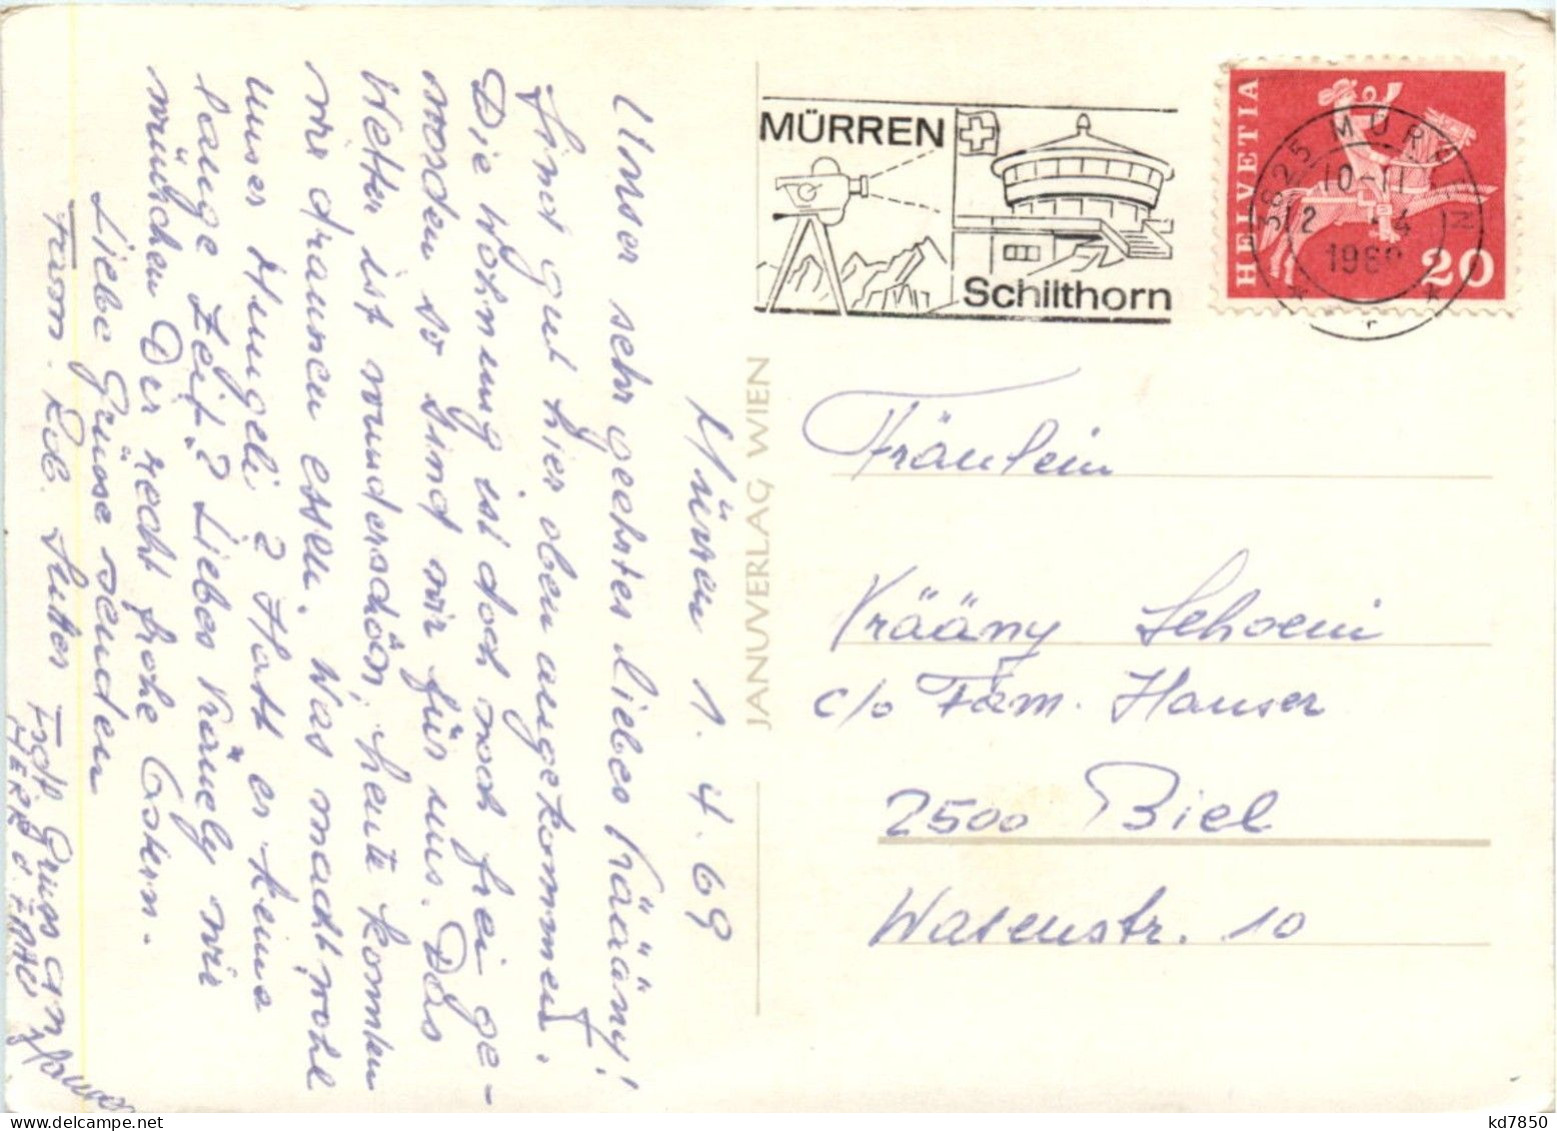 Mürren 1. 4. 69
Unser sehr geehrtes liebes Krääny!
Sind gut hier oben angekommen.
Die Wohnung ist doch noch frei ge-
worden so sind wir für uns. Das
Wetter ist wunderschön, heute konnten
wir draussen essen. Was macht wohl
unser Hungeli? Hatt es keine
lange Zeit? Liebes Kränely wir
wünschen Dir recht frohe Ostern.
Liebe Grüsse senden
Fam. Rob. Sutter
Gruss an
HERR U. FRAU
Hauser
JANUVERLAG WIEN
MÜRREN
Schilthorn
HELVETIA
20
3825 MÜRREN
10-11
1969
Fräulein
Krääny Schoeni
c/o Fam. Hauser
2500 Biel
Wasenstr. 10
kd7850